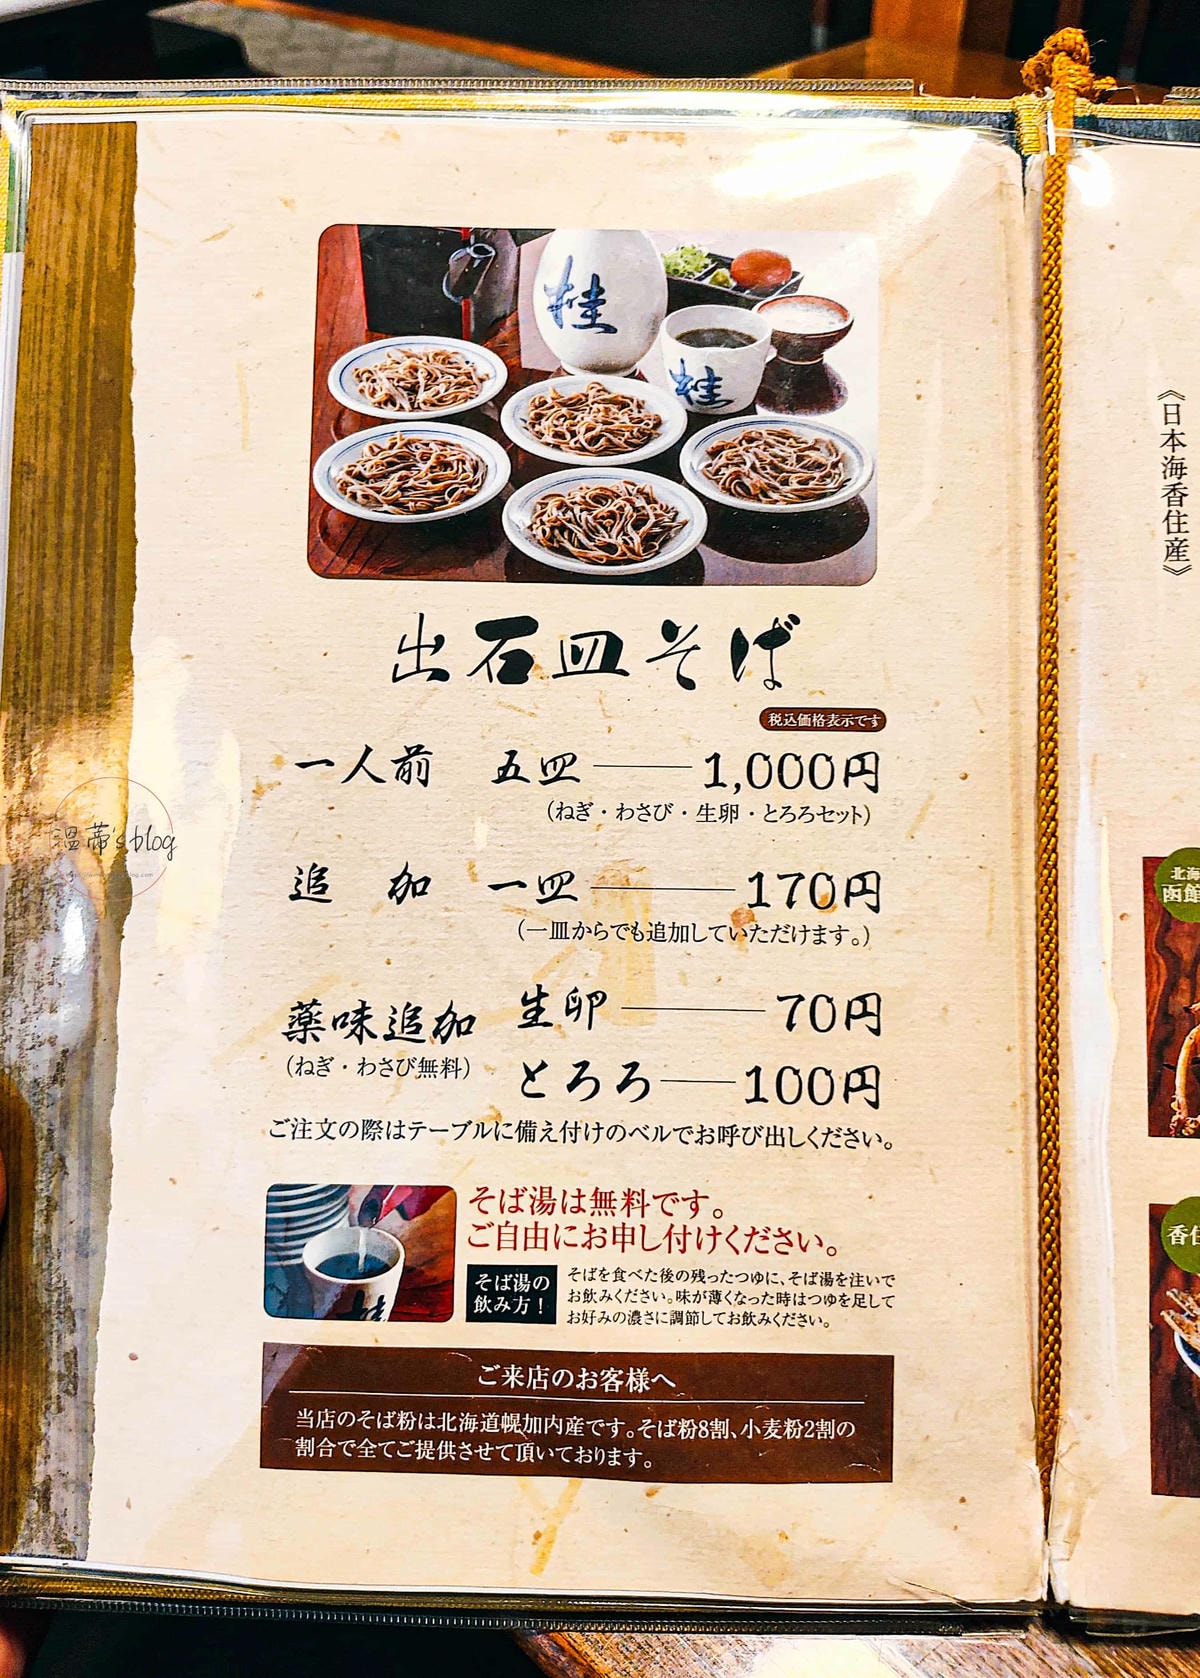 桂
桂
出石皿そば
税込価格表示です
一人前 五皿 1,000円
(ねぎ・わさび・生卵・とろろセット)
追 加 一皿 170円
(一皿からでも追加していただけます。)
薬味追加 生卵 70円
(ねぎ・わさび無料) とろろ 100円
ご注文の際はテーブルに備え付けのベルでお呼び出しください。
そば湯は無料です。
ご自由にお申し付けください。
そば湯の
飲み方!
そばを食べた後の残ったつゆに、そば湯を注いで
お飲みください。味が薄くなった時はつゆを足して
お好みの濃さに調節してお飲みください。
ご来店のお客様へ
当店のそば粉は北海道幌加内産です。そば粉8割、小麦粉2割の
割合で全てご提供させて頂いております。
《日本海香住産》
北海
函館
香住
溫蒂's blog